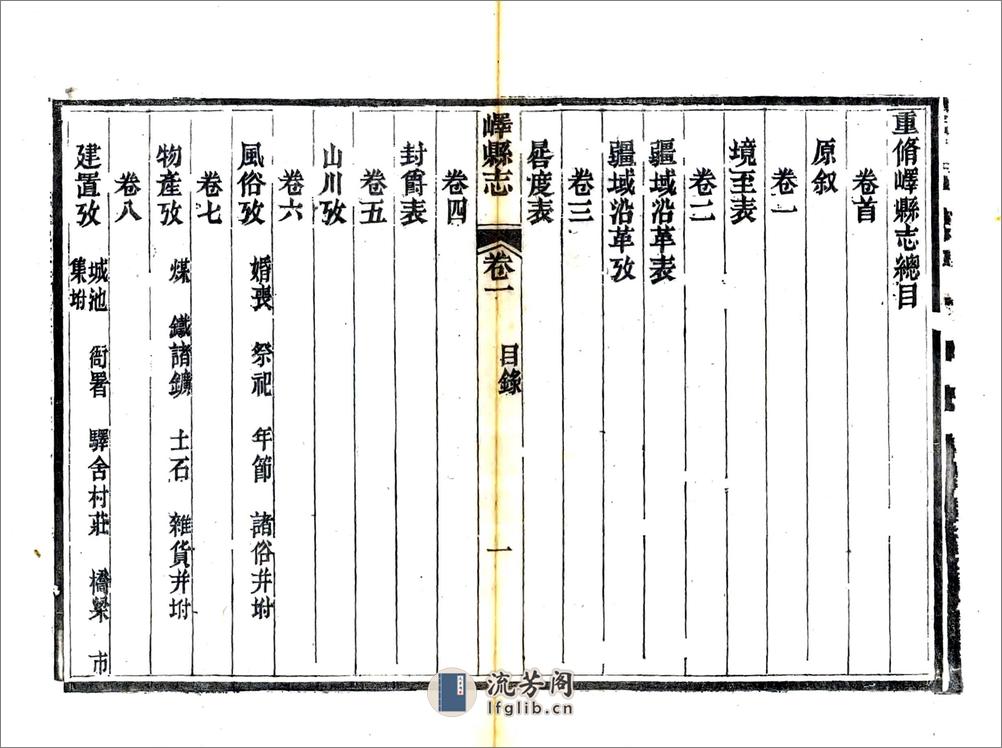 重脩嶧縣志總目
卷首
原叙
卷一
境至表
卷二
疆域沿革表
疆域沿革攷
卷三
晷度表
嶧縣志 卷一 目錄 一
卷四
封爵表
卷五
山川攷
卷六
風俗攷 婚喪 祭祀 年節 諸俗幷坿
卷七
物產攷 煤 鐵諸鑛 土石 雜貨幷坿
卷八
建置攷 城池 衙署 驛舍村莊 橋梁 市
集坿
流芳阁
lfglib.cn